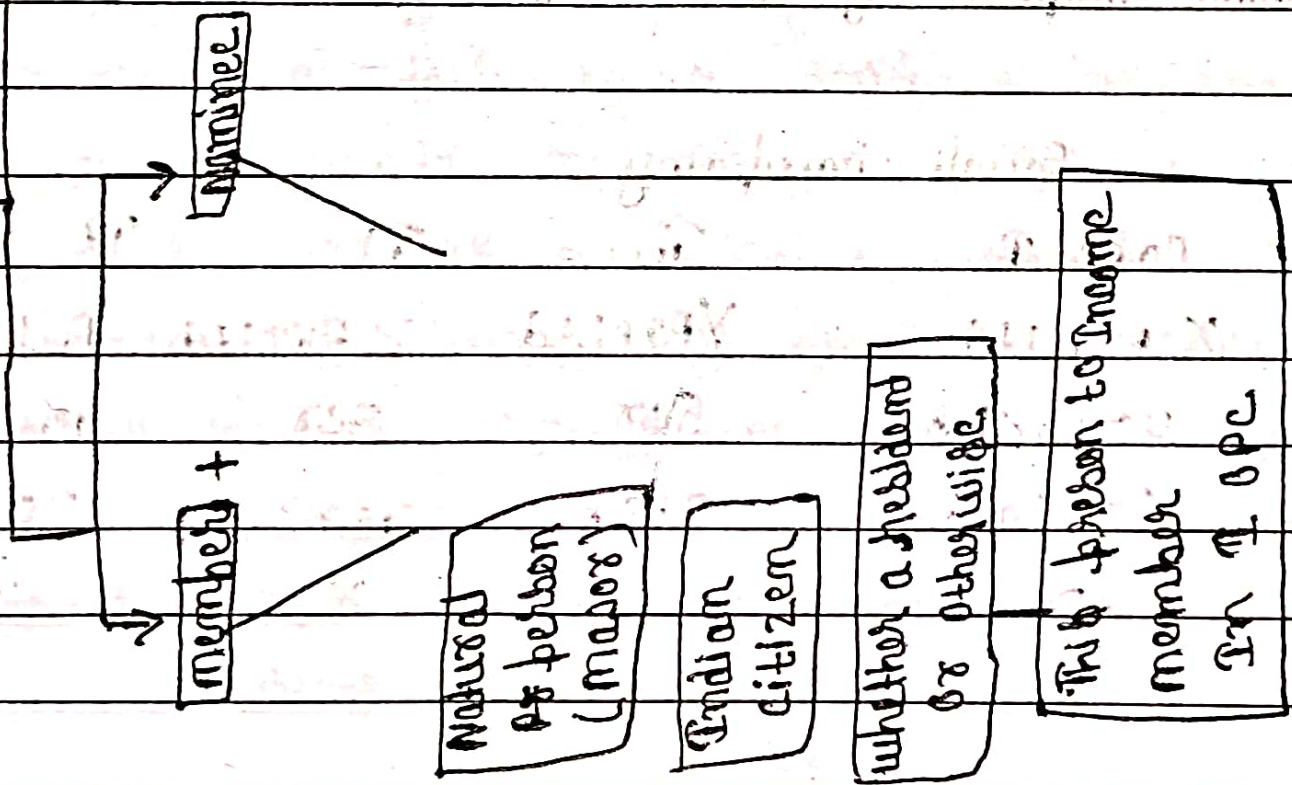 member +
Nominee
Natural
Pr person
(Masor)
Indian
citizen
whether a resident
or otherwise
This person to Income
member
In I OPC